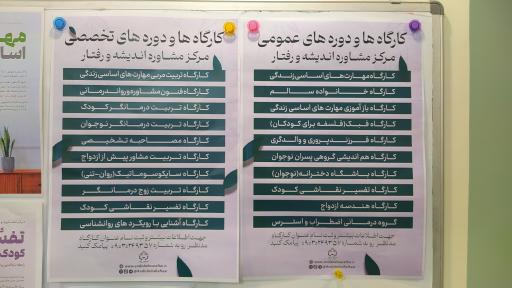 کارگاه ها و دوره های تخصصی
مرکز مشاوره اندیشه و رفتار
کارگاه تربیت مربی مهارت های اساسی زندگی
کارگاه فنون مشاوره و روان درمانی
کارگاه تربیت درمانگر کودک
کارگاه تربیت درمانگر نوجوان
کارگاه مصاحبه تشخیصی
کارگاه تربیت مشاور پیش از ازدواج
کارگاه سایکوسوماتیک (روان-تنی)
کارگاه تربیت زوج درمانگر
کارگاه تفسیر نقاشی کودک
کارگاه آشنایی با رویکرد های روانشناسی
جهت اطلاعات بیشتر و ثبت نام عنوان کارگاه
مدنظر رو به شماره
پیامک کنید
کارگاه ها و دوره های عمومی
مرکز مشاوره اندیشه و رفتار
کارگاه مهارت های اساسی زندگی
کارگاه خانواده سالم
کارگاه بازآموزی مهارت های اساسی زندگی
کارگاه فبک (فلسفه برای کودکان)
کارگاه فرزندپروری و والدگری
کارگاه هم اندیشی گروهی پسران نوجوان
کارگاه باشگاه دخترانه (نوجوان)
کارگاه تفسیر نقاشی کودک
کارگاه هندسه ازدواج
گروه درمانی اضطراب و استرس
جهت اطلاعات بیشتر و ثبت نام عنوان کارگاه
مدنظر رو به شماره
پیامک کنید